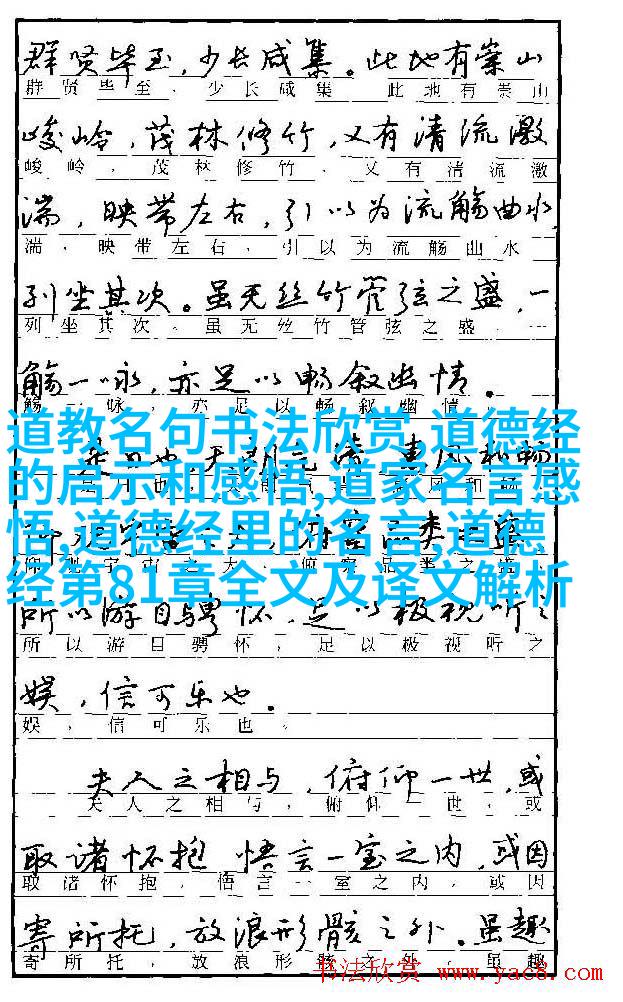 群贤毕至，少长咸集。此地有崇山
群贤毕至，少长咸集 此地有崇山
峻岭，茂林修竹，又有清流激
峻岭，茂林修竹，又有清流激
湍，映带左右，引以为流觞曲水，
湍，映带左右，引以为流觞曲水
列坐其次。虽无丝竹管弦之盛，一
列坐其次。虽无丝竹管弦之盛，一
觞一咏，亦足以畅叙幽情。
觞一咏，亦足以畅叙幽情
道教名句书法欣赏,道德经
的启示和感悟,道家名言感
悟,道德经里的名言,道德
经第81章全文及译文解析
所以游目骋怀，足以极视听之
所以游目骋怀，足以极视听之
娱，信可乐也。
娱，信可乐也。
夫人之相与，俯仰一世，或
夫人之相与，俯仰一世，或
取诸怀抱 悟言一室之内，或因
取诸怀抱，悟言一室之内，或因
寄所托，放浪形骸之外。虽趣
寄所托，放浪形骸之外。虽趣
书法欣赏 www.yac8.com